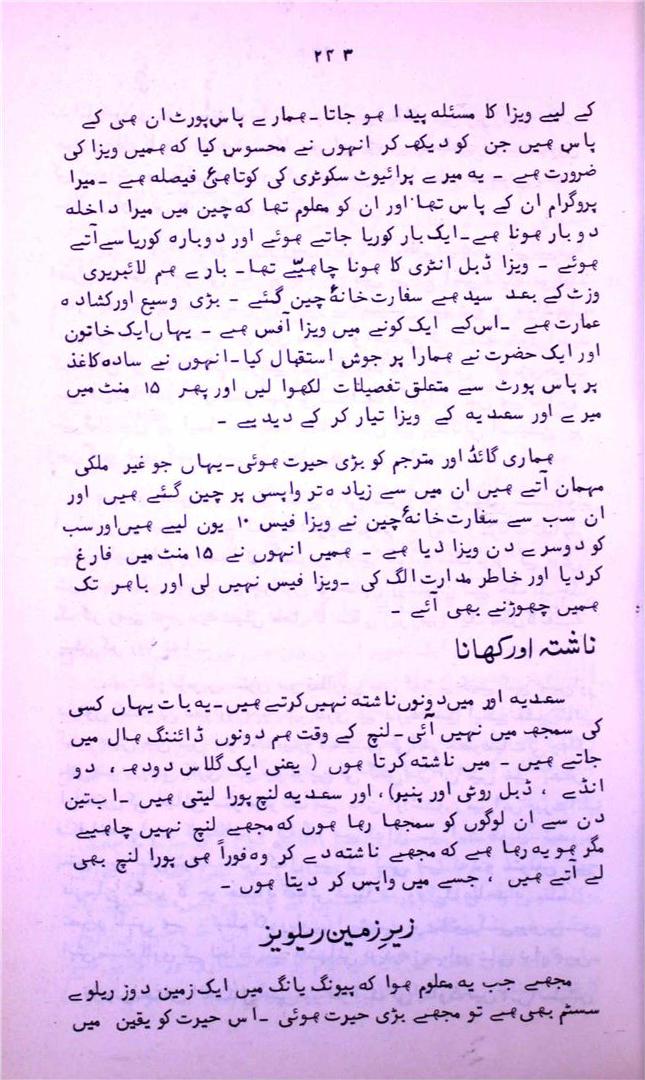 ۲۴۳
کے لیے ویزا کا مسئلہ پیدا ہو جاتا۔ ہمارے پاس پورٹ ان ہی کے
پاس ہیں جن کو دیکھ کر انہوں نے محسوس کیا کہ ہمیں ویزا کی
ضرورت ہے ۔ یہ میرے پرائیوٹ سکوٹری کی کوتاہیٔ فیصلہ ہے ۔ میرا
پروگرام ان کے پاس تھا اور ان کو معلوم تھا کہ چین میں میرا داخلہ
دو بار ہونا ہے۔ ایک بار کوریا جاتے ہوئے اور دوبارہ کوریا سے آتے
ہوئے ۔ ویزا ڈبل انٹری کا ہونا چاہیے تھا۔ بارے ہم لائبریری
وزٹ کے بعد سیدھے سفارت خانۂ چین گئے ۔ بڑی وسیع اور کشادہ
عمارت ہے ۔ اس کے ایک کونے میں ویزا آفس ہے ۔ یہاں ایک خاتون
اور ایک حضرت نے ہمارا پر جوش استقبال کیا۔ انہوں نے سادہ کاغذ
پر پاس پورٹ سے متعلق تفصیلات لکھوا لیں اور پھر ۱۵ منٹ میں
میرے اور سعدیہ کے ویزا تیار کر کے دیدیے ۔
ہماری گائڈ اور مترجم کو بڑی حیرت ہوئی۔ یہاں جو غیر ملکی
مہمان آتے ہیں ان میں سے زیادہ تر واپسی پر چین گئے ہیں اور
ان سب سے سفارت خانۂ چین نے ویزا فیس ۱۰ یون لیے ہیں اور سب
کو دوسرے دن ویزا دیا ہے ۔ ہمیں انہوں نے ۱۵ منٹ میں فارغ
کر دیا اور خاطر مدارت الگ کی ۔ ویزا فیس نہیں لی اور باہر تک
ہمیں چھوڑنے بھی آئے ۔
ناشتہ اور کھانا
سعدیہ اور میں دونوں ناشتہ نہیں کرتے ہیں۔ یہ بات یہاں کسی
کی سمجھ میں نہیں آئی۔ لنچ کے وقت ہم دونوں ڈائننگ ہال میں
جاتے ہیں ۔ میں ناشتہ کرتا ہوں ( یعنی ایک گلاس دودھ ، دو
انڈے ، ڈبل روٹی اور پنیر)، اور سعدیہ لنچ پورا لیتی ہیں ۔ اب تین
دن سے ان لوگوں کو سمجھا رہا ہوں کہ مجھے لنچ نہیں چاہیے
مگر ہو یہ رہا ہے کہ مجھے ناشتہ دے کر وہ فوراً ہی پورا لنچ بھی
لے آتے ہیں ، جسے میں واپس کر دیتا ہوں ۔
زیرِ زمین ریلویز
مجھے جب یہ معلوم ہوا کہ پیونگ یانگ میں ایک زمین دوز ریلوے
سسٹم بھی ہے تو مجھے بڑی حیرت ہوئی ۔ اس حیرت کو یقین میں